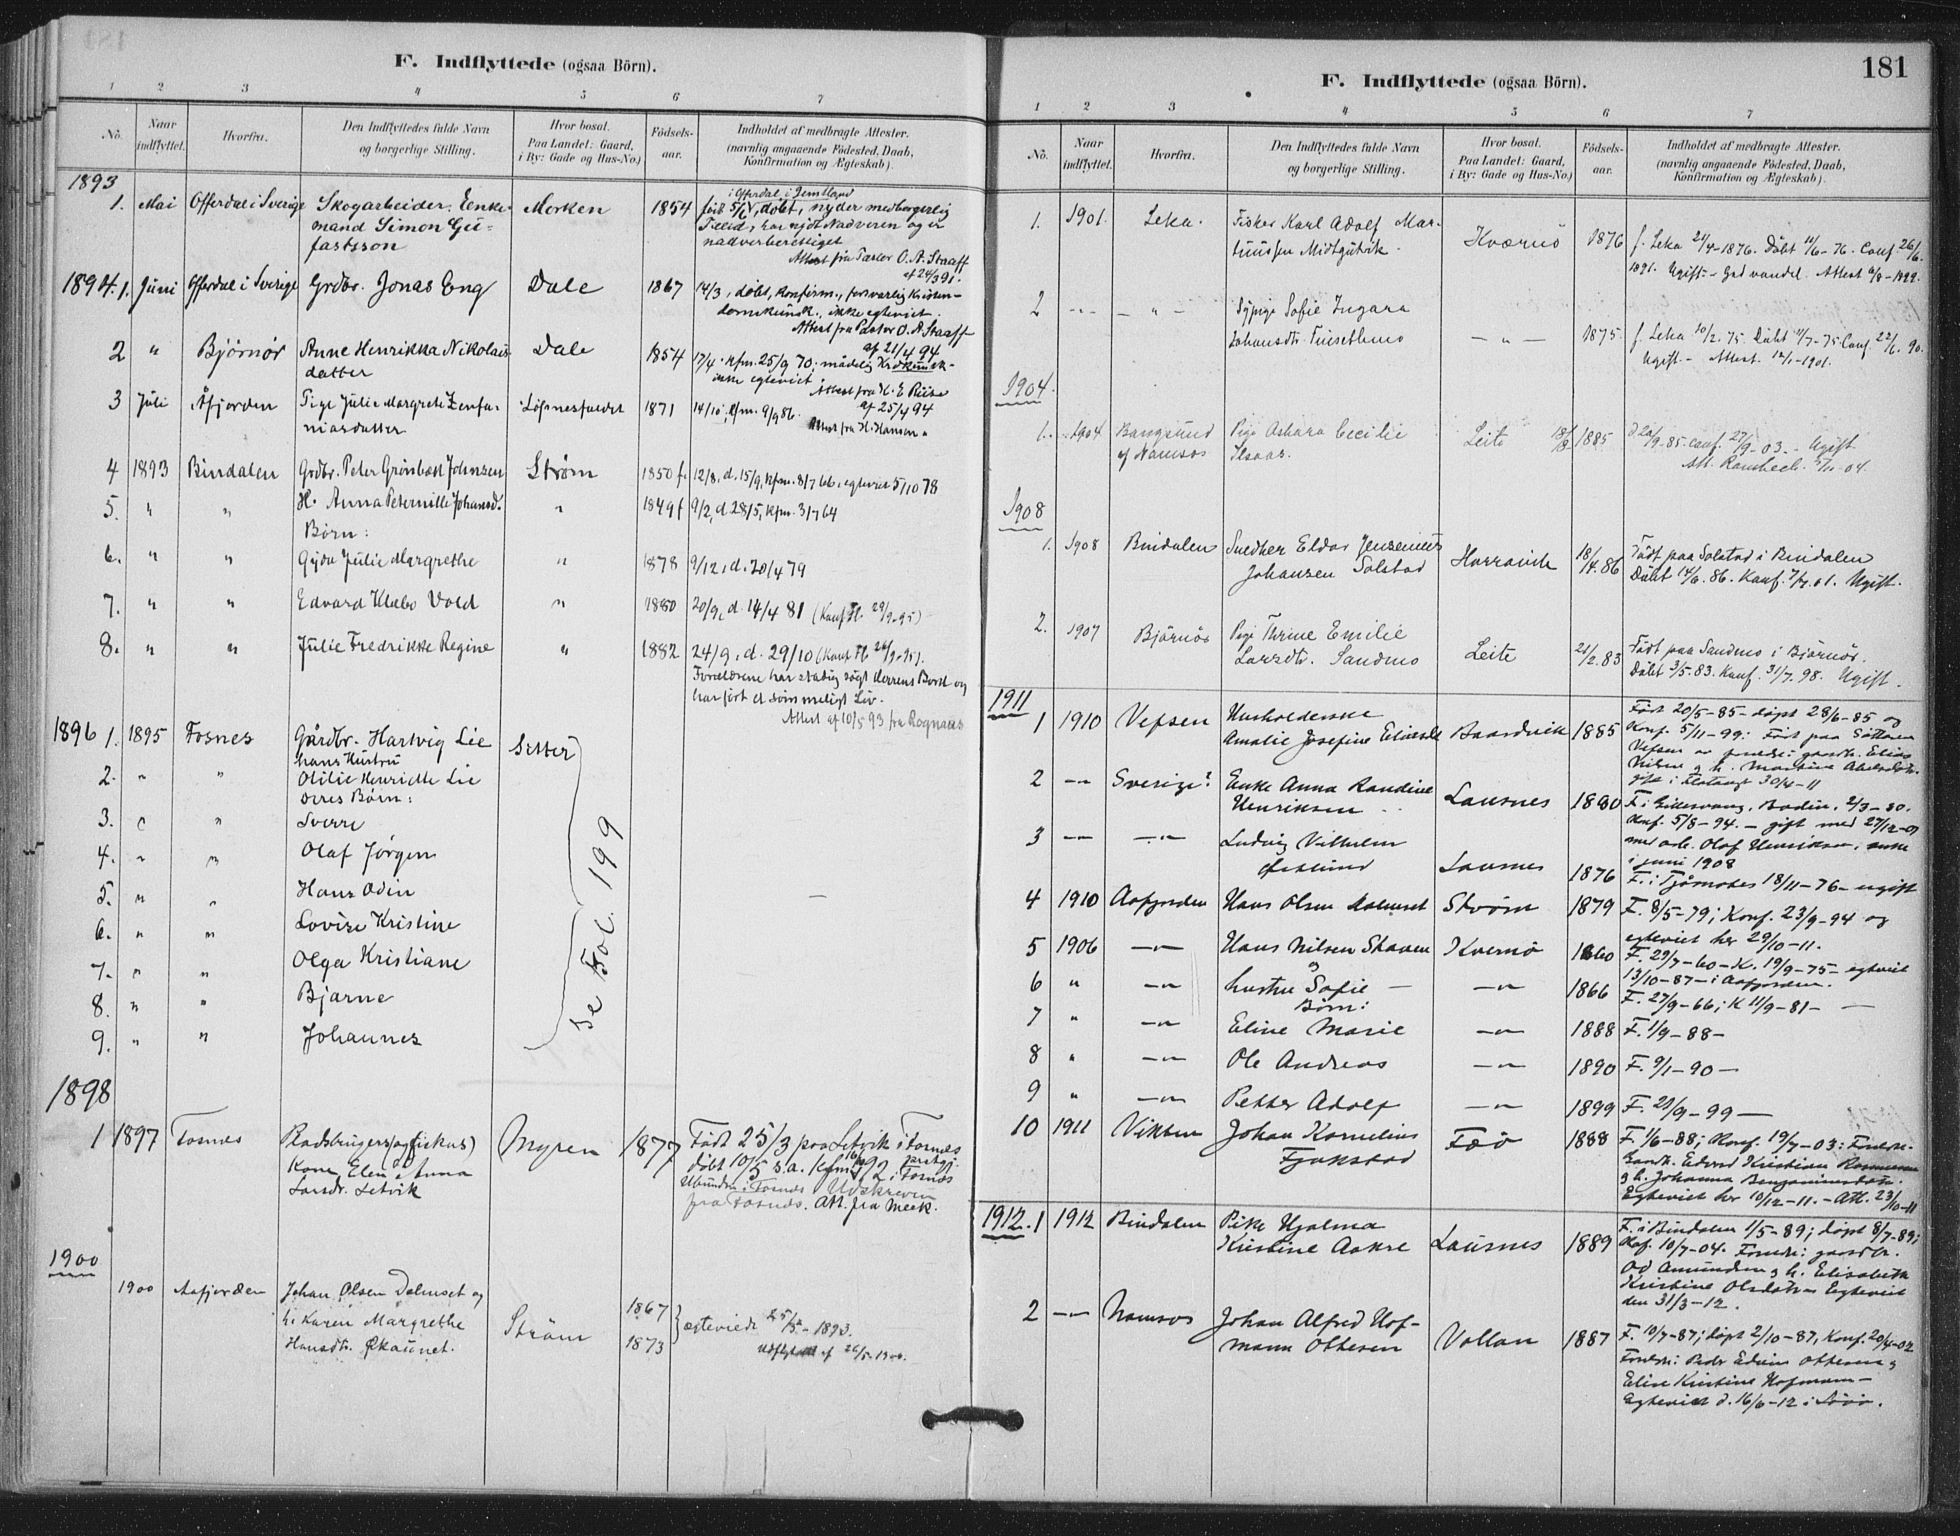 F. Indflyttede (ogsaa Börn).
1 2 3 4 5 6 7
No. Naar indflyttet. Hvorfra. Den Indflyttedes fulde Navn og borgerlige Stilling. Hvor bosat. Paa Landet: Gaard, i By: Gade og Hus-No.) Födsels-aar. Indholdet af medbragte Attester. (navnlig angaaende Födested, Daab, Konfirmation og Ægteskab).
1893
1. Mai Offerdal i Sverige Skogarbeider, Enke- Merken 1854 född 5/6, döbt, nyder medborgerlig
i Offerdal i Jemtland
mand Simon Gu- Tillid, har nydt Nadveren og er
fastsson nadverberettiget
Attest fra Pastor O. A. Staaff
af 24/3 91.
1894. 1. Juni Offerdal i Sverige Grdbr. Jonas Eng Dale 1867 14/3, döbt, konfirm., forsvarlig Kristen-
domskundsk., ikke egteviet.
Attest fra Pastor O. A. Staaff
af 21/4 94
2 " Björnör Anne Henrikka Nikolais- Dale 1854 17/4. kfm. 25/9 70; maadelig
datter ikke egteviet Attest fra H. E. Riise
af 25/4 94
3 Juli Åfjorden Pige Julie Margrete Zenfa- Löfsnesfaldet 1871 14/10, kfm. 9/9 86.
niasdatter Attest fra H. Hansen
4 1893 Bindalen Grdbr. Peter Grönbæk Johnsen Ström 1850 f. 12/8, d. 15/9, kfm. 8/7 66, egteviet 5/10 78
5. " " H. Anna Peternille Johansd. " 1849 f 9/2, d. 28/5, kfm. 3/7 64
Börn:
6. " " Gyda Julie Margrethe " 1878 9/12, d. 20/4 79
7. " " Edvard Klabo Vold " 1880 20/9, d. 14/4 81 (Konf. Fl. 29/9-95)
8. " " Julie Fredrikke Regine " 1882 24/9, d. 29/10 (Konf. Fl.
Forældrene har stadig sögt Herrens Bord og
har fört et sömmeligt Liv.
Attest af 10/5 93 fra Rognaas
1896 1. 1895 Fosnes Gårdbr. Hartvig Lie Setter
hans Hustru
2. " " Otilie Henriette Lie
deres Börn:
3. " " Sverre
4. " " Olaf Jörgen
5. " " Hans Odin
6. " " Lovise Kristine
7. " " Olga Kristiane
8. " " Bjarne
9. " " Johannes
Se Fol. 199
1898
1 1897 Fosnes Pladsbrugers (og fiskers) Myren 1877 Född 25/3 paa Setvik i Fosnes
Kone Elen Anna döbt 10/5 s.a. 92 i Fosnes
Larsdr. Setvik i Fosnes Udskreven
fra Fosnes. Att. fra Meek.
1900
1900 Aafjorden Johan Olsen Dalmset og 1867
h. Karen Margrethe Ström egteviede 25/5-1893.
Hansdtr. Økaunet. 1873 af 26/5-1900.
181
F. Indflyttede (ogsaa Börn).
1 2 3 4 5 6 7
No. Naar indflyttet. Hvorfra. Den Indflyttedes fulde Navn og borgerlige Stilling. Hvor bosat. Paa Landet: Gaard, i By: Gade og Hus-No.) Födsels-aar. Indholdet af medbragte Attester. (navnlig angaaende Födested, Daab, Konfirmation og Ægteskab).
1. 1901. Leka. Fisker Karl Adolf Mar- Kværnö 1876 f. Leka 21/4-1876. Döbt 11/6-76. Conf. 26/6.
tinussen Midtgutvik. 1891. Ugift. - God vandel. Attest
2 Sypige Sofie Ingara
Johansdtr. 1875. f. Leka 10/2. 75. Döbt 11/7-75. Conf. 22/6. 90.
Ugift. - Attest. 12/1-1901.
1904.
1. 1904 Bangsund Pige Ashora Cecilie Leite 1885 Conf. 27/9-03. Ugift
af Namsos Isaks. Att. Rambech. 5/11-04.
1908
1. 1908 Bindalen Snedker Eldor Jensenius Horsvik 18/4. 86 Född paa Solstad i Bindalen
Johansen Solstad Döbt 14/6. 86. Konf. 7/7. 01. Ugift.
2. 1907 Björnör Pige Thrine Emilie Leite 21/2. 83 Född paa Sandmo i Björnör.
Larsdtr. Sandmo Döbt 3/5. 83. Konf. 31/7. 98. Ugift.
1911
1 1910 Vefsen Husholderske Född 20/5-85- döpt 28/6-85 og
Amalie Josefine Baardvik 1885 Konf. 5/11-99: Född paa
Vefsen av gaardbr. Elias
Nilsen og h. Martine
gift i Flatanger 30/4-11
2 —"— Sverige? Enke Anna Randine
Henriksen Lausnes 1880 F. i Bodin, 2/3-80.
Konf. 5/8-94. - gift med 27/12-
med arb. Olaf Henriksen, enke
i juni 1908
3 —"— —"— Ludvig Vilhelm
Östlund Lausnes 1876 F. i 18/11-76- ugift
4 1910 Aafjorden Hans Olsen Dalmset Ström 1879 F. 8/5-79; Konf. 23/9-94 og
egteviet her 29/10-11.
5 1906 —"— Hans Nilsen Skauen Kvernö 1860 F. 29/7-60-K. 19/9-75- egteviet
og 13/10-87- i Aafjorden.
6 " —"— hustru Sofie — —"— 1866 F. 27/9-66; K 11/9-81- —
Börn:
7 " —"— Eline Marie —"— 1888 F. 1/9-88-
8 " —"— Ole Andreas —"— 1890 F. 9/1-90—
9 " —"— Petter Adolf —"— 1899 F. 21/9-99—
10 1911 Vikten Johan Kornelius Faö 1888 F. 1/6-88; Konf. 19/7-03: Foreldre:
Fjukstad Gaardb. Edvard Kristian Rasmussen
og h. Johanna Benjaminsdatter.
Egteviet her 10/12-11. - Att. 23/10-11
1912. 1 1912 Bindalen Pike Hjalma F. i Bindalen 1/5-89; döpt 8/7-89;
Kristine Aakre Lausnes 1889 Kof. 10/7-04. Foreldr: gaardbr.
Od Amundsen og h. Elisabeth
Kristine Olsdatter Egteviet
den 31/3-12.
2 —"— Namsos Johan Alfred Hof- Vollan 1887 F. 19/7-87; döpt 2/10-87, Konf. 20/4-02
mann Ottesen Foreldr: Peder Edvin Ottesen og
Elise Kristine Hofmann-
Egteviet d. 16/6-12 i